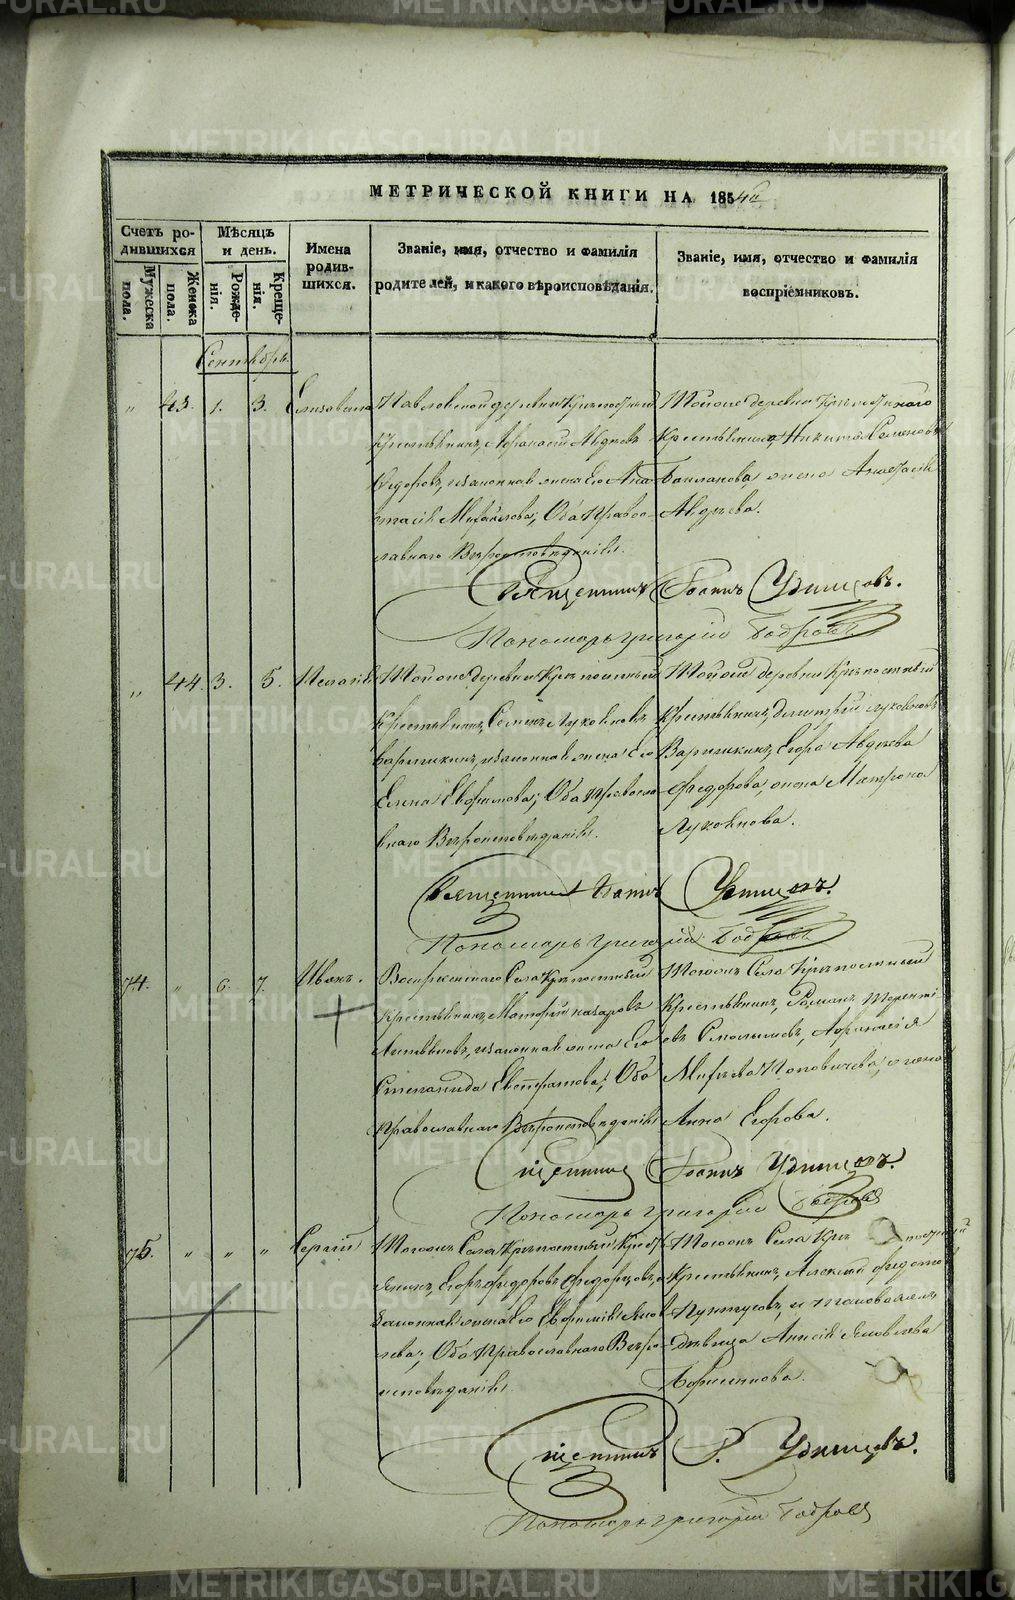 METRIKI.GASO-URAL.RU
МЕТРИЧЕСКОЙ КНИГИ НА 1854й
Счетъ родившихся
Мужеска пола.
Женска пола.
Мѣсяцъ и день.
Рожденія.
Крещенія.
Имена родившихся.
Званіе, имя, отчество и фамилія родителей, и какого вѣроисповѣданія.
Званіе, имя, отчество и фамилія воспріемниковъ.
Сентябрь
" 43. 1. 3. Елизавета
Павловской деревни Крѣпостный
Крестьянинъ, Авдѣевъ
Ѳедоровъ, и законная жена его Ана-
стасія Михайлова; Оба Правос-
лавнаго Вѣроисповѣданія.
Тойже деревни Крѣпостнаго
Крестьянина, Никиты Семенова
жена Анастасія
Авдѣева.
Священникъ Іоаннъ Удинцовъ.
Пономарь Григорій Бобровъ
" 44. 3. 5. Пелагія
Тойже деревни Крѣпостный
Крестьянинъ, Семенъ Лукояновъ
Варничкинъ, и законная жена его
Елена Евфимова; Оба Правосла-
внаго Вѣроисповѣданія.
Тойже деревни Крѣпостный
Крестьянинъ, Димитрій Лукояновъ
Варничкинъ, Егора Авдѣева
Федорова, жена Матрона
Лукоянова.
Священникъ Іоаннъ Удинцовъ.
Пономарь Григорій Бобровъ
74. " 6. 7. Иванъ.
Воскресенскаго Села Крѣпостный
Крестьянинъ, Назаровъ
и законная жена Его
Степанида Евстратова; Оба
Православнаго Вѣроисповѣданія
Тогожъ Села Крѣпостный
Крестьянинъ, Романъ Теренті-
евъ
жена
Анна Егорова.
Священникъ Іоаннъ Удинцовъ.
Пономарь Григорій Бобровъ
75. " " " Сергій
Тогожъ Села Крѣпостный Крест-
янинъ, Егоръ Федоровъ
законная жена его Евфимія Яков-
лева; Оба Православнаго Вѣро-
исповѣданія.
Тогожъ Села Крѣпостный
Крестьянинъ, Алексій Федото
и таковаяжъ
дѣвица Анисія Яковлева
Священникъ І. Удинцовъ.
Пономарь Григорій Бобровъ